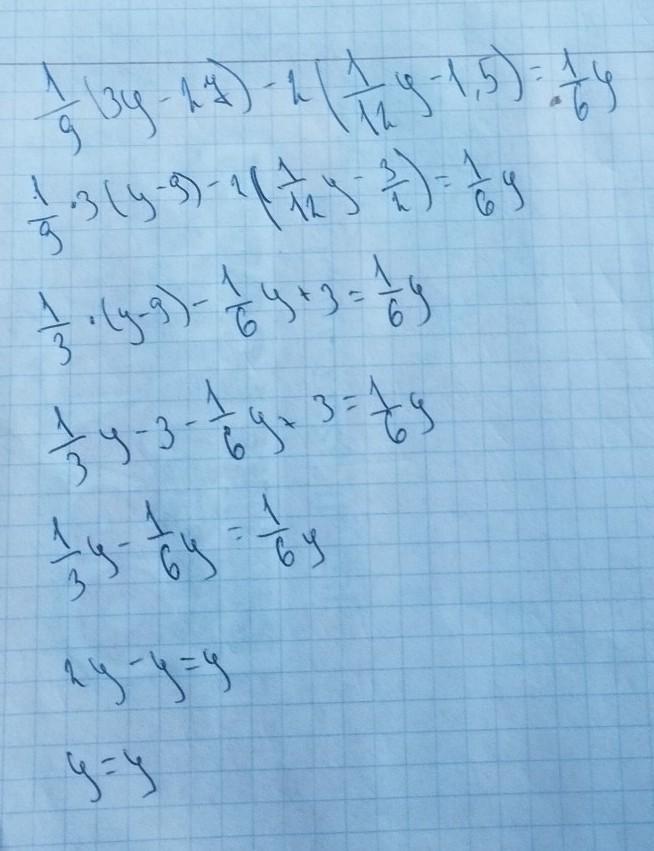 1/9 (3y - 27) - 2(1/12 y - 1,5) = 1/6 y
1/9 · 3(y - 9) - 2(1/12 y - 3/2) = 1/6 y
1/3 · (y - 9) - 1/6 y + 3 = 1/6 y
1/3 y - 3 - 1/6 y + 3 = 1/6 y
1/3 y - 1/6 y = 1/6 y
2y - y = y
y = y